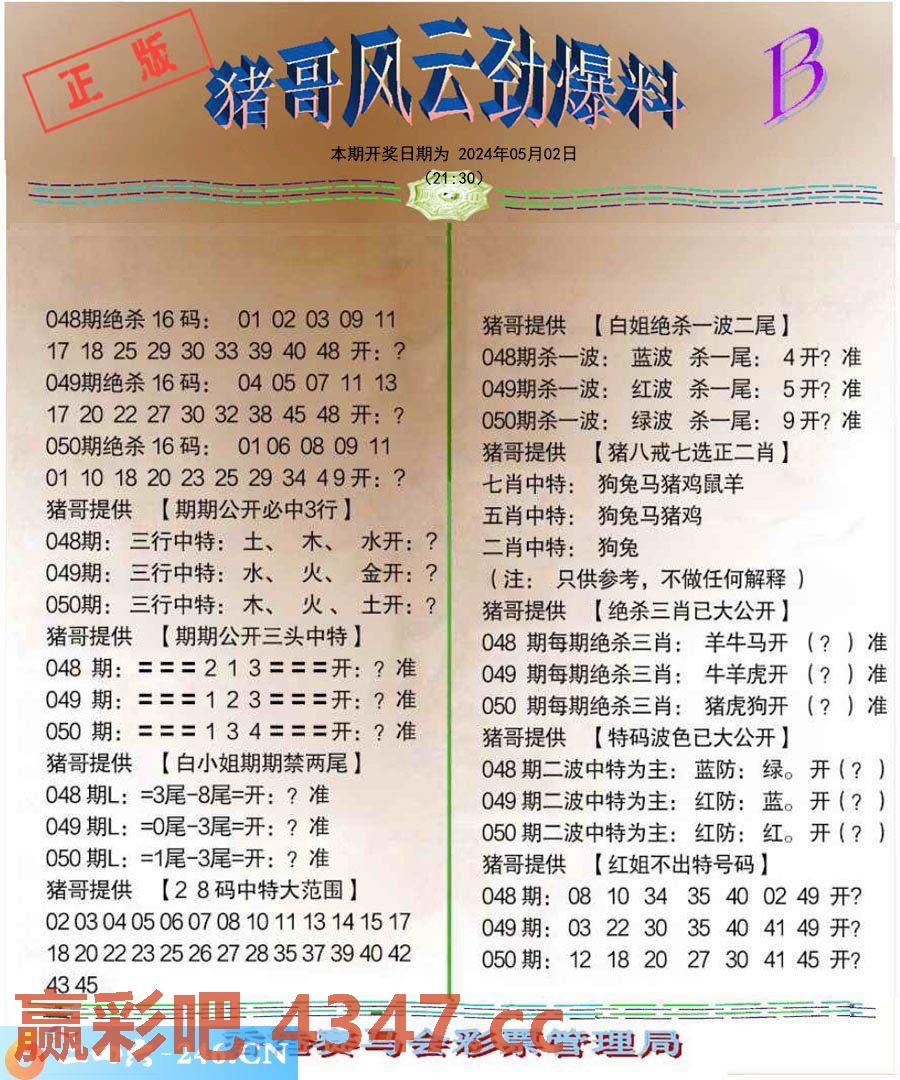 正版
猪哥风云劲爆料
B
本期开奖日期为 2024年05月02日
(21:30)
048期绝杀 16 码： 01 02 03 09 11
17 18 25 29 30 33 39 40 48 开：？
049期绝杀 16 码： 04 05 07 11 13
17 20 22 27 30 32 38 45 48 开：？
050期绝杀 16 码： 01 06 08 09 11
01 10 18 20 23 25 29 34 4 9 开：？
猪哥提供 【期期公开必中3行】
048期： 三行中特： 土、 木、 水开：？
049期： 三行中特： 水、 火、 金开：？
050期： 三行中特： 木、 火 、 土开：？
猪哥提供 【期期公开三头中特】
048 期：＝＝＝ 2 1 3 ＝＝＝开：？准
049 期：＝＝＝ 1 2 3 ＝＝＝开：？准
050 期：＝＝＝ 1 3 4 ＝＝＝开：？准
猪哥提供 【白小姐期期禁两尾】
048 期L：=3尾-8尾=开：？准
049 期L：=0尾-3尾=开：？准
050 期L：=1尾-3尾=开：？准
猪哥提供 【2 8 码中特大范围】
02 03 04 05 06 07 08 10 11 13 14 15 17
18 20 22 23 25 26 27 28 35 37 39 40 42
43 45
猪哥提供 【白姐绝杀一波二尾】
048期杀一波： 蓝波 杀一尾： 4 开？准
049期杀一波： 红波 杀一尾： 5 开？准
050期杀一波： 绿波 杀一尾： 9 开？准
猪哥提供 【猪八戒七选正二肖】
七肖中特： 狗兔马猪鸡鼠羊
五肖中特： 狗兔马猪鸡
二肖中特： 狗兔
（注： 只供参考，不做任何解释 ）
猪哥提供 【绝杀三肖已大公开】
048 期每期绝杀三肖： 羊牛马开 （？ ）准
049 期每期绝杀三肖： 牛羊虎开 （？ ）准
050 期每期绝杀三肖： 猪虎狗开 （？ ）准
猪哥提供 【特码波色已大公开】
048 期二波中特为主：蓝防：绿。开（？ ）
049 期二波中特为主：红防：蓝。开（？ ）
050 期二波中特为主：红防：红。开（？ ）
猪哥提供 【红姐不出特号码】
048 期： 08 10 34 35 40 02 49 开?
049 期： 03 22 30 35 40 41 49 开?
050 期： 12 18 20 27 30 41 45 开?
赢彩吧 4347.cc
赛马会彩票管理局
-246.CN